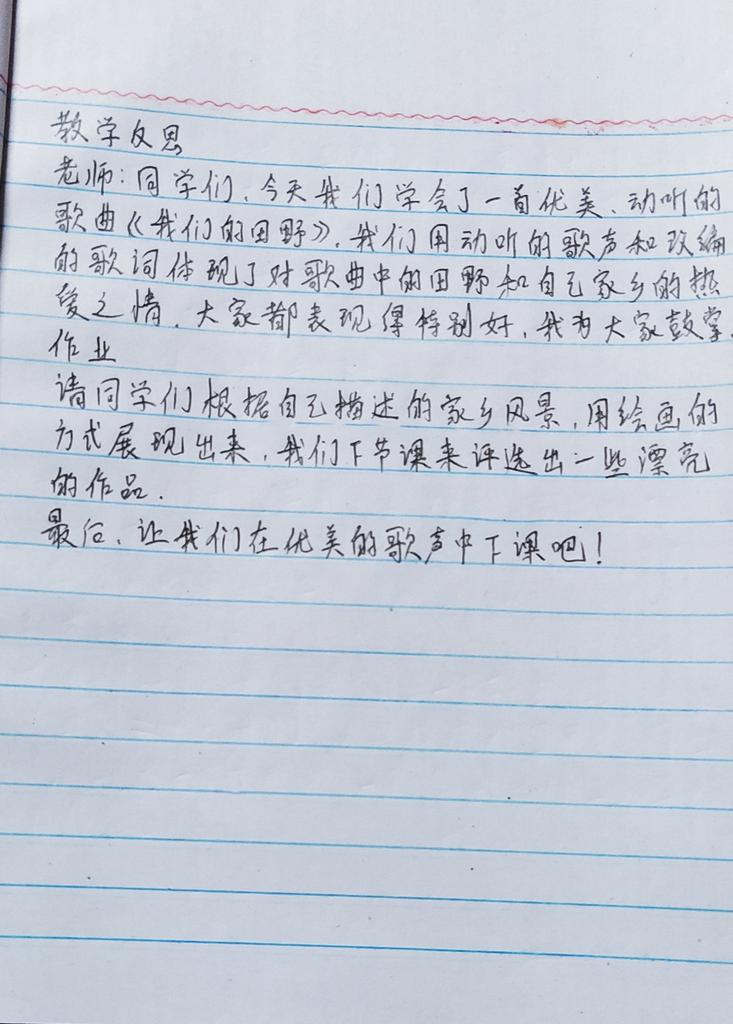 教学反思
老师：同学们，今天我们学会了一首优美、动听的
歌曲《我们的田野》，我们用动听的歌声和改编
的歌词体现了对歌曲中的田野和自己家乡的热
爱之情，大家都表现得特别好，我为大家鼓掌。
作业
请同学们根据自己描述的家乡风景，用绘画的
方式展现出来，我们下节课来评选出一些漂亮
的作品.
最后，让我们在优美的歌声中下课吧！